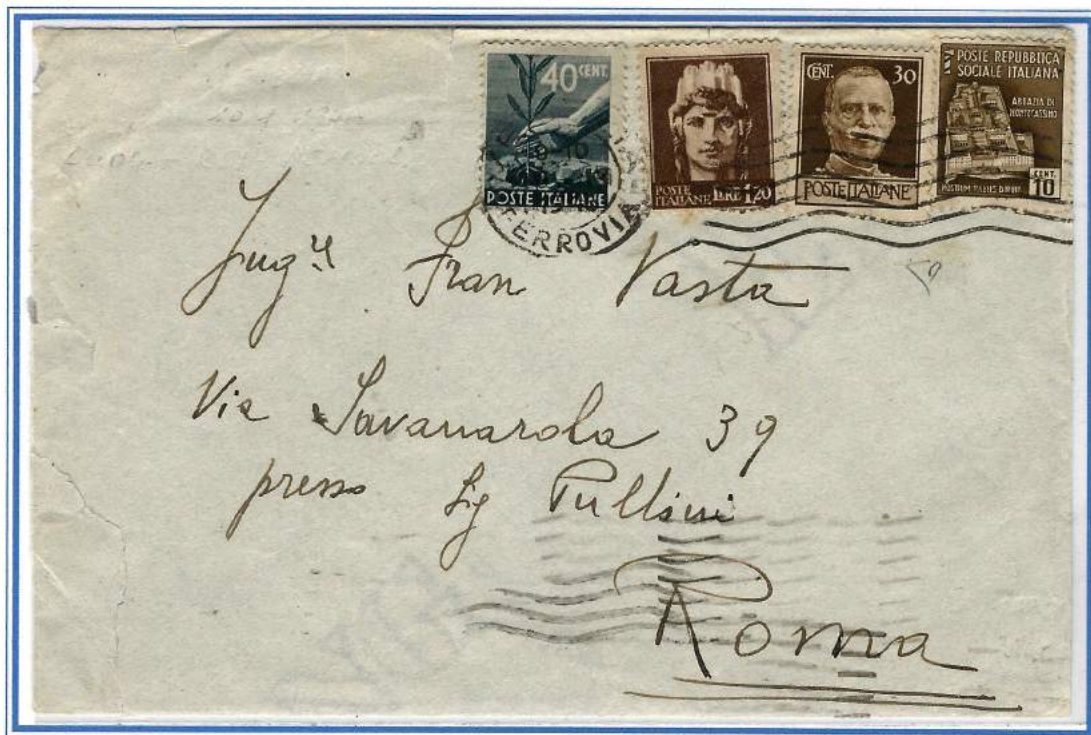 40 CENT.
POSTE ITALIANE
POSTE
ITALIANE LIRE 1,20
CENT. 30
POSTE ITALIANE
POSTE REPUBBLICA
SOCIALE ITALIANA
ABBAZIA DI
MONTECASSINO
CENT.
10
FERROVIA
Ing.re Fran Vasta
Via Savanarola 39
presso Sig Pullini
Roma